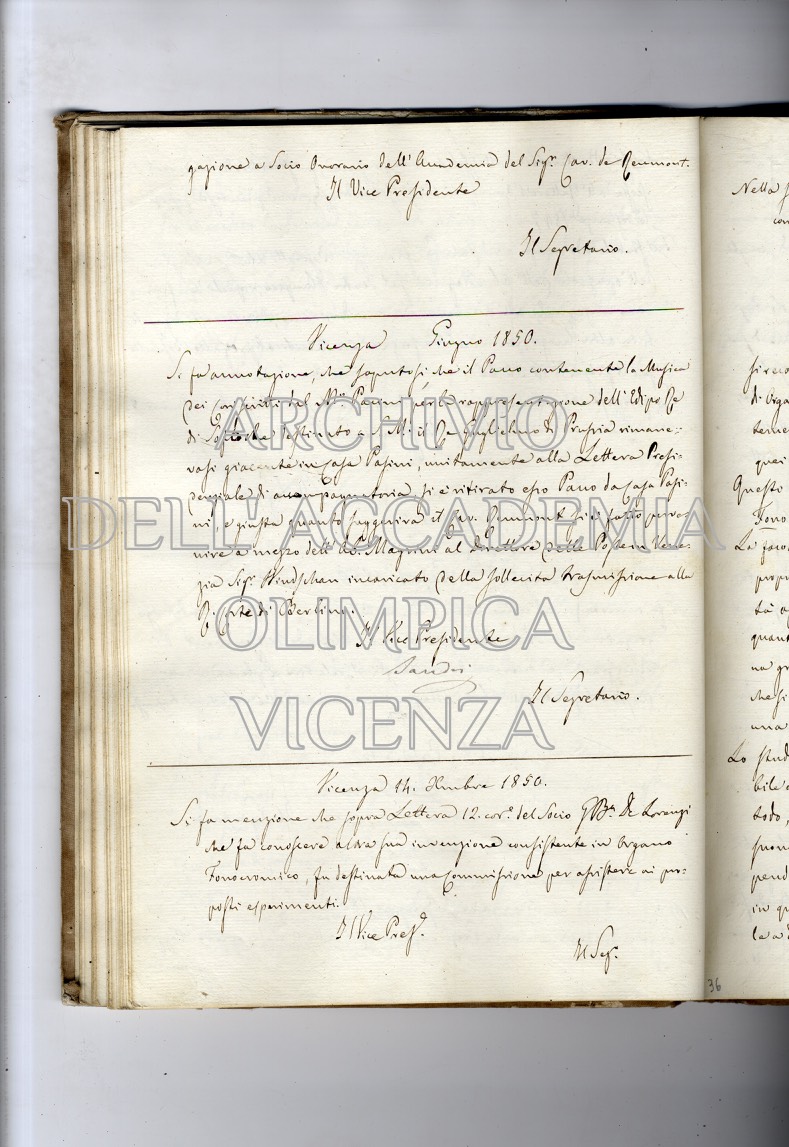 gazione a Socio Onorario dell'Accademia del Sigr. Cav. de Reumont.
Il Vice Presidente
Il Segretario.
Vicenza Giugno 1850.
Si fa annotazione, che saputosi che il Pacco contenente la Musica
dei Cori scritti dal Mo. Pacini per la rappresentazione dell'Edipo Re
di Sofocle destinato a S. M. il Re Guglielmo di Prussia rimane-
vasi giacente in Casa Pasini, unitamente alla Lettera Presi-
denziale di accompagnatoria, si è ritirato esso Pacco da Casa Pasi-
ni, e giusta quanto suggeriva il Cav. Reumont si è fatto perve-
nire a mezzo dell' Magrini al Direttore delle Poste in Vene-
zia Sigr. incaricato della sollecita trasmissione alla
R. Corte di Berlino.
Il Vice Presidente
Sandri
Il Segretario.
Vicenza 14. Xmbre 1850.
Si fa menzione che sopra Lettera 12. cor.e del Socio GBta. De Lorenzi
che fa conoscere altra sua invenzione consistente in Organo
Fonocromico, fu destinata una Commissione per assistere ai pro-
posti esperimenti.
Il Vice Pres.e
Il Seg.o
36
Nella
con
di Orga
terne
quei
Questo
Fono
La faco
propr
tà a
quant
na gr
che si
una
Lo stud
bile
todo,
suon
pend
in qu
la a
ARCHIVIO
DELL'ACCADEMIA
OLIMPICA
VICENZA